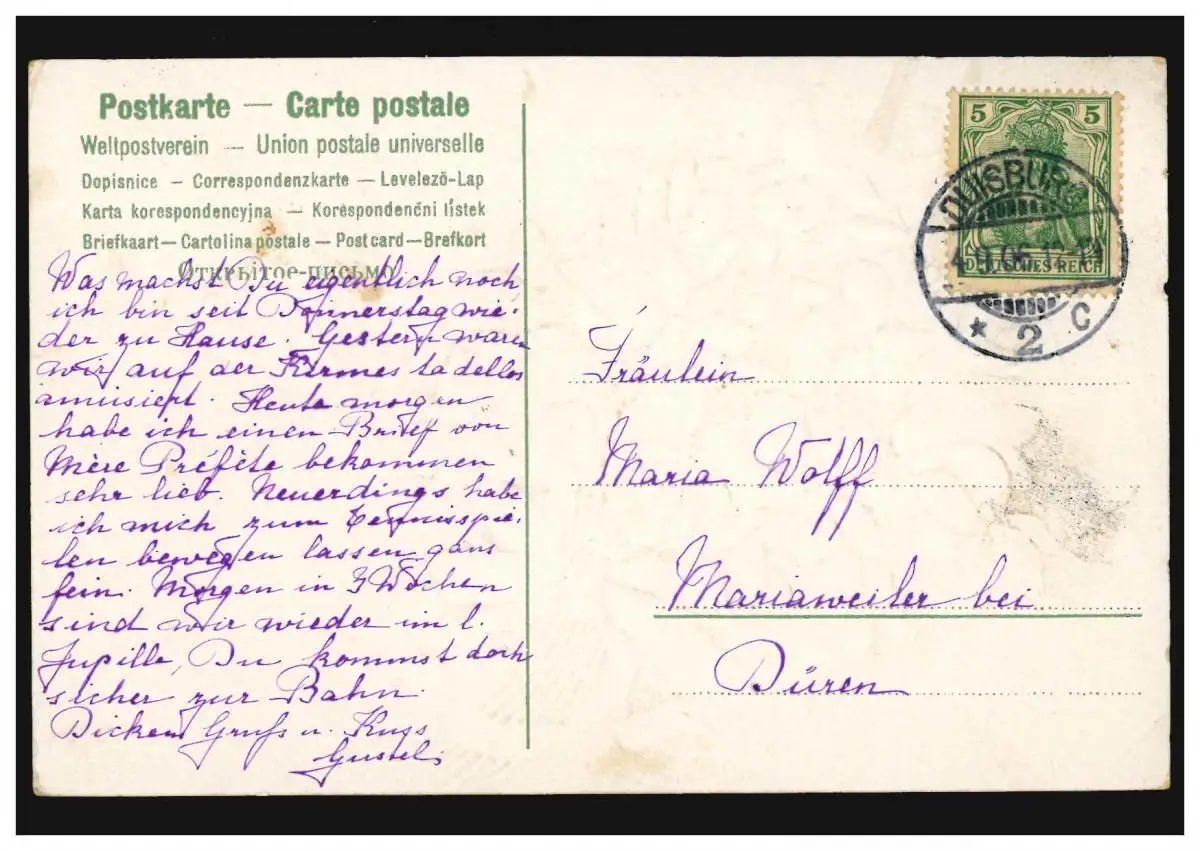 Postkarte — Carte postale
Weltpostverein — Union postale universelle
Dopisnice — Correspondenzkarte — Levelező-Lap
Karta korespondencyjna — Korespondenčni lístek
Briefkaart — Cartolina postale — Post card — Brefkort
Открытое-письмо
Was machst Du eigentlich noch
ich bin seit Donnerstag wie-
der zu Hause. Gestern waren
wir auf der Kirmes tadellos
amüsiert. Heute morgen
habe ich einen Brief von
Mère Préfète bekommen
sehr lieb. Neuerdings habe
ich mich zum Tennisspie-
len bewegen lassen, ganz
fein. Morgen in 3 Wochen
sind wir wieder im l.
Jupille, Du kommst doch
sicher zur Bahn.
Dicken Gruß u. Kuss
Gustel.
5 5
DEUTSCHES REICH
DUISBURG
* 2 c
Fräulein
Maria Wolff
Mariaweiler bei
Düren